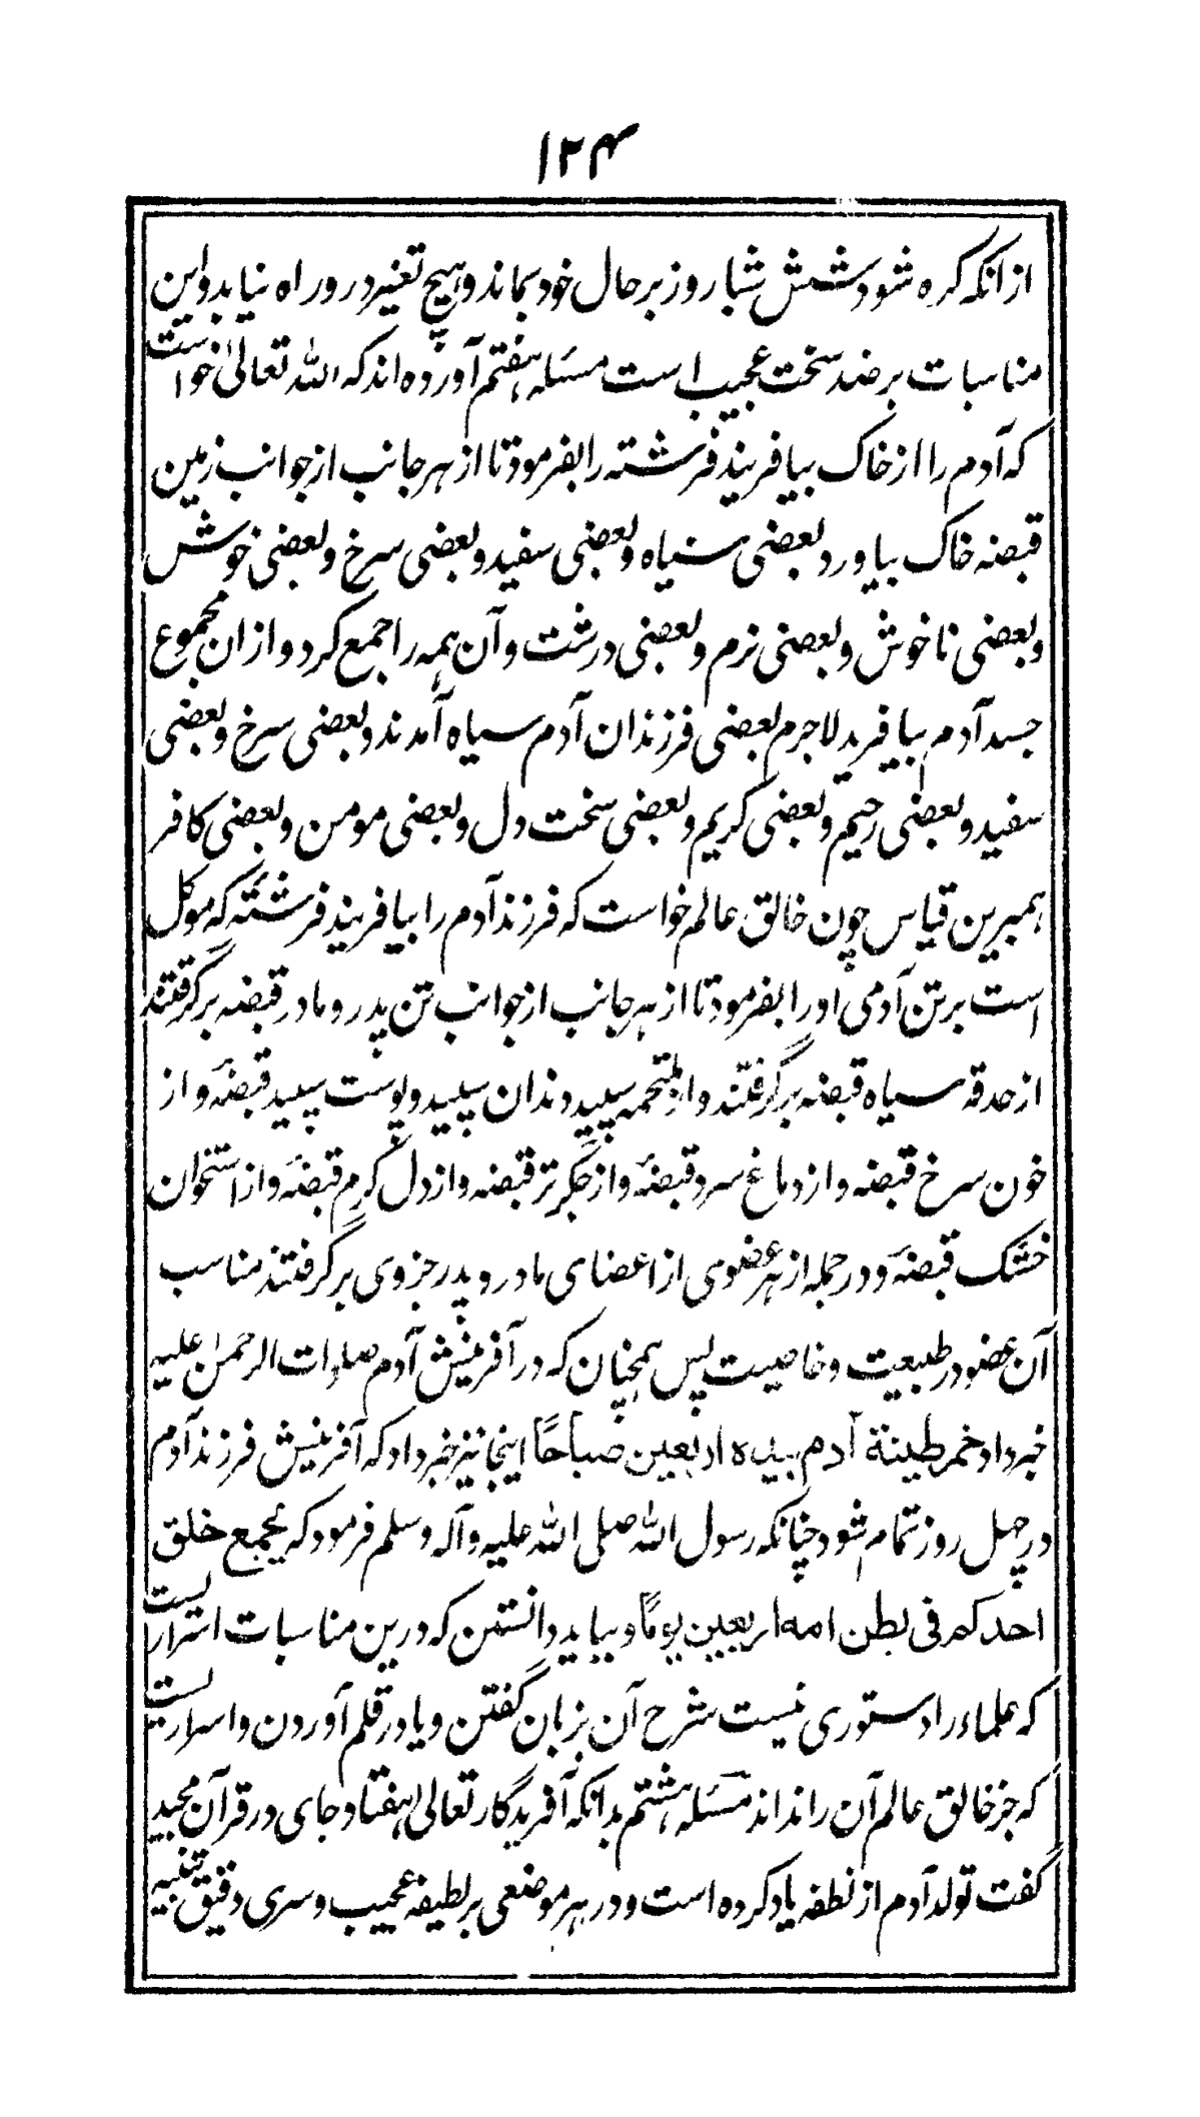 ۱۲۴
از انکه کره شود شش شبا روز بر حال خود بماند و هیچ تغیر در و راه نیابد و این
مناسبات بر ضد سخت عجیب است مسئله هفتم آورده اند که الله تعالیٰ خواست
که آدم را از خاک بیافریند فرشته را بفرمود تا از هر جانب از جوانب زمین
قبضه خاک بیاورد بعضی سیاه و بعضی سفید و بعضی سرخ و بعضی خوش
و بعضی ناخوش و بعضی نرم و بعضی درشت و آن همه را جمع کرد و از ان مجموع
جسد آدم بیافرید لاجرم بعضی فرزندان آدم سیاه آمدند و بعضی سرخ و بعضی
سفید و بعضی رحیم و بعضی کریم و بعضی سخت دل و بعضی مومن و بعضی کافر
همبرین قیاس چون خالق عالم خواست که فرزند آدم را بیافریند فرشته که موکل
است بر تن آدمی اورا بفرمود تا از هر جانب از جوانب تن پدر و مادر قبضه برگرفتند
از حدقه سیاه قبضه برگرفتند و از ملتحمه سپید و دندان سپید و پوست سپید قبضهٔ و از
خون سرخ قبضه و از دماغ سرد قبضهٔ و از جگر تر قبضه و از دل گرم قبضهٔ و از استخوان
خشک قبضهٔ و در جمله از هر عضوی از اعضای مادر و پدر جزوی برگرفتند مناسب
آن عضو در طبیعت و خاصیت پس همچنان که در آفرینش آدم صلوات الرحمٰن علیه
خبر داد خمر طینة آدم بیده اربعین صباحًا اینجا نیز خبر داد که آفرینش فرزند آدم
در چهل روز تمام شود چنانکه رسول الله صلی الله علیه و آله وسلم فرمود که یجمع خلق
احدکم فی بطن امه اربعین یومًا و بباید دانستن که درین مناسبات اسراریست
که علماء را دستوری نیست شرح آن بزبان گفتن و یا در قلم آوردن و اسراریست
که جز خالق عالم آن را نداند مسئله هشتم بدانکه آفریدگار تعالی هفتاد جای در قرآن مجید
گفت تولد آدم از نطفه یاد کرده است و در هر موضعی بر لطیفهٔ عجیب و سری دقیق تنبیه